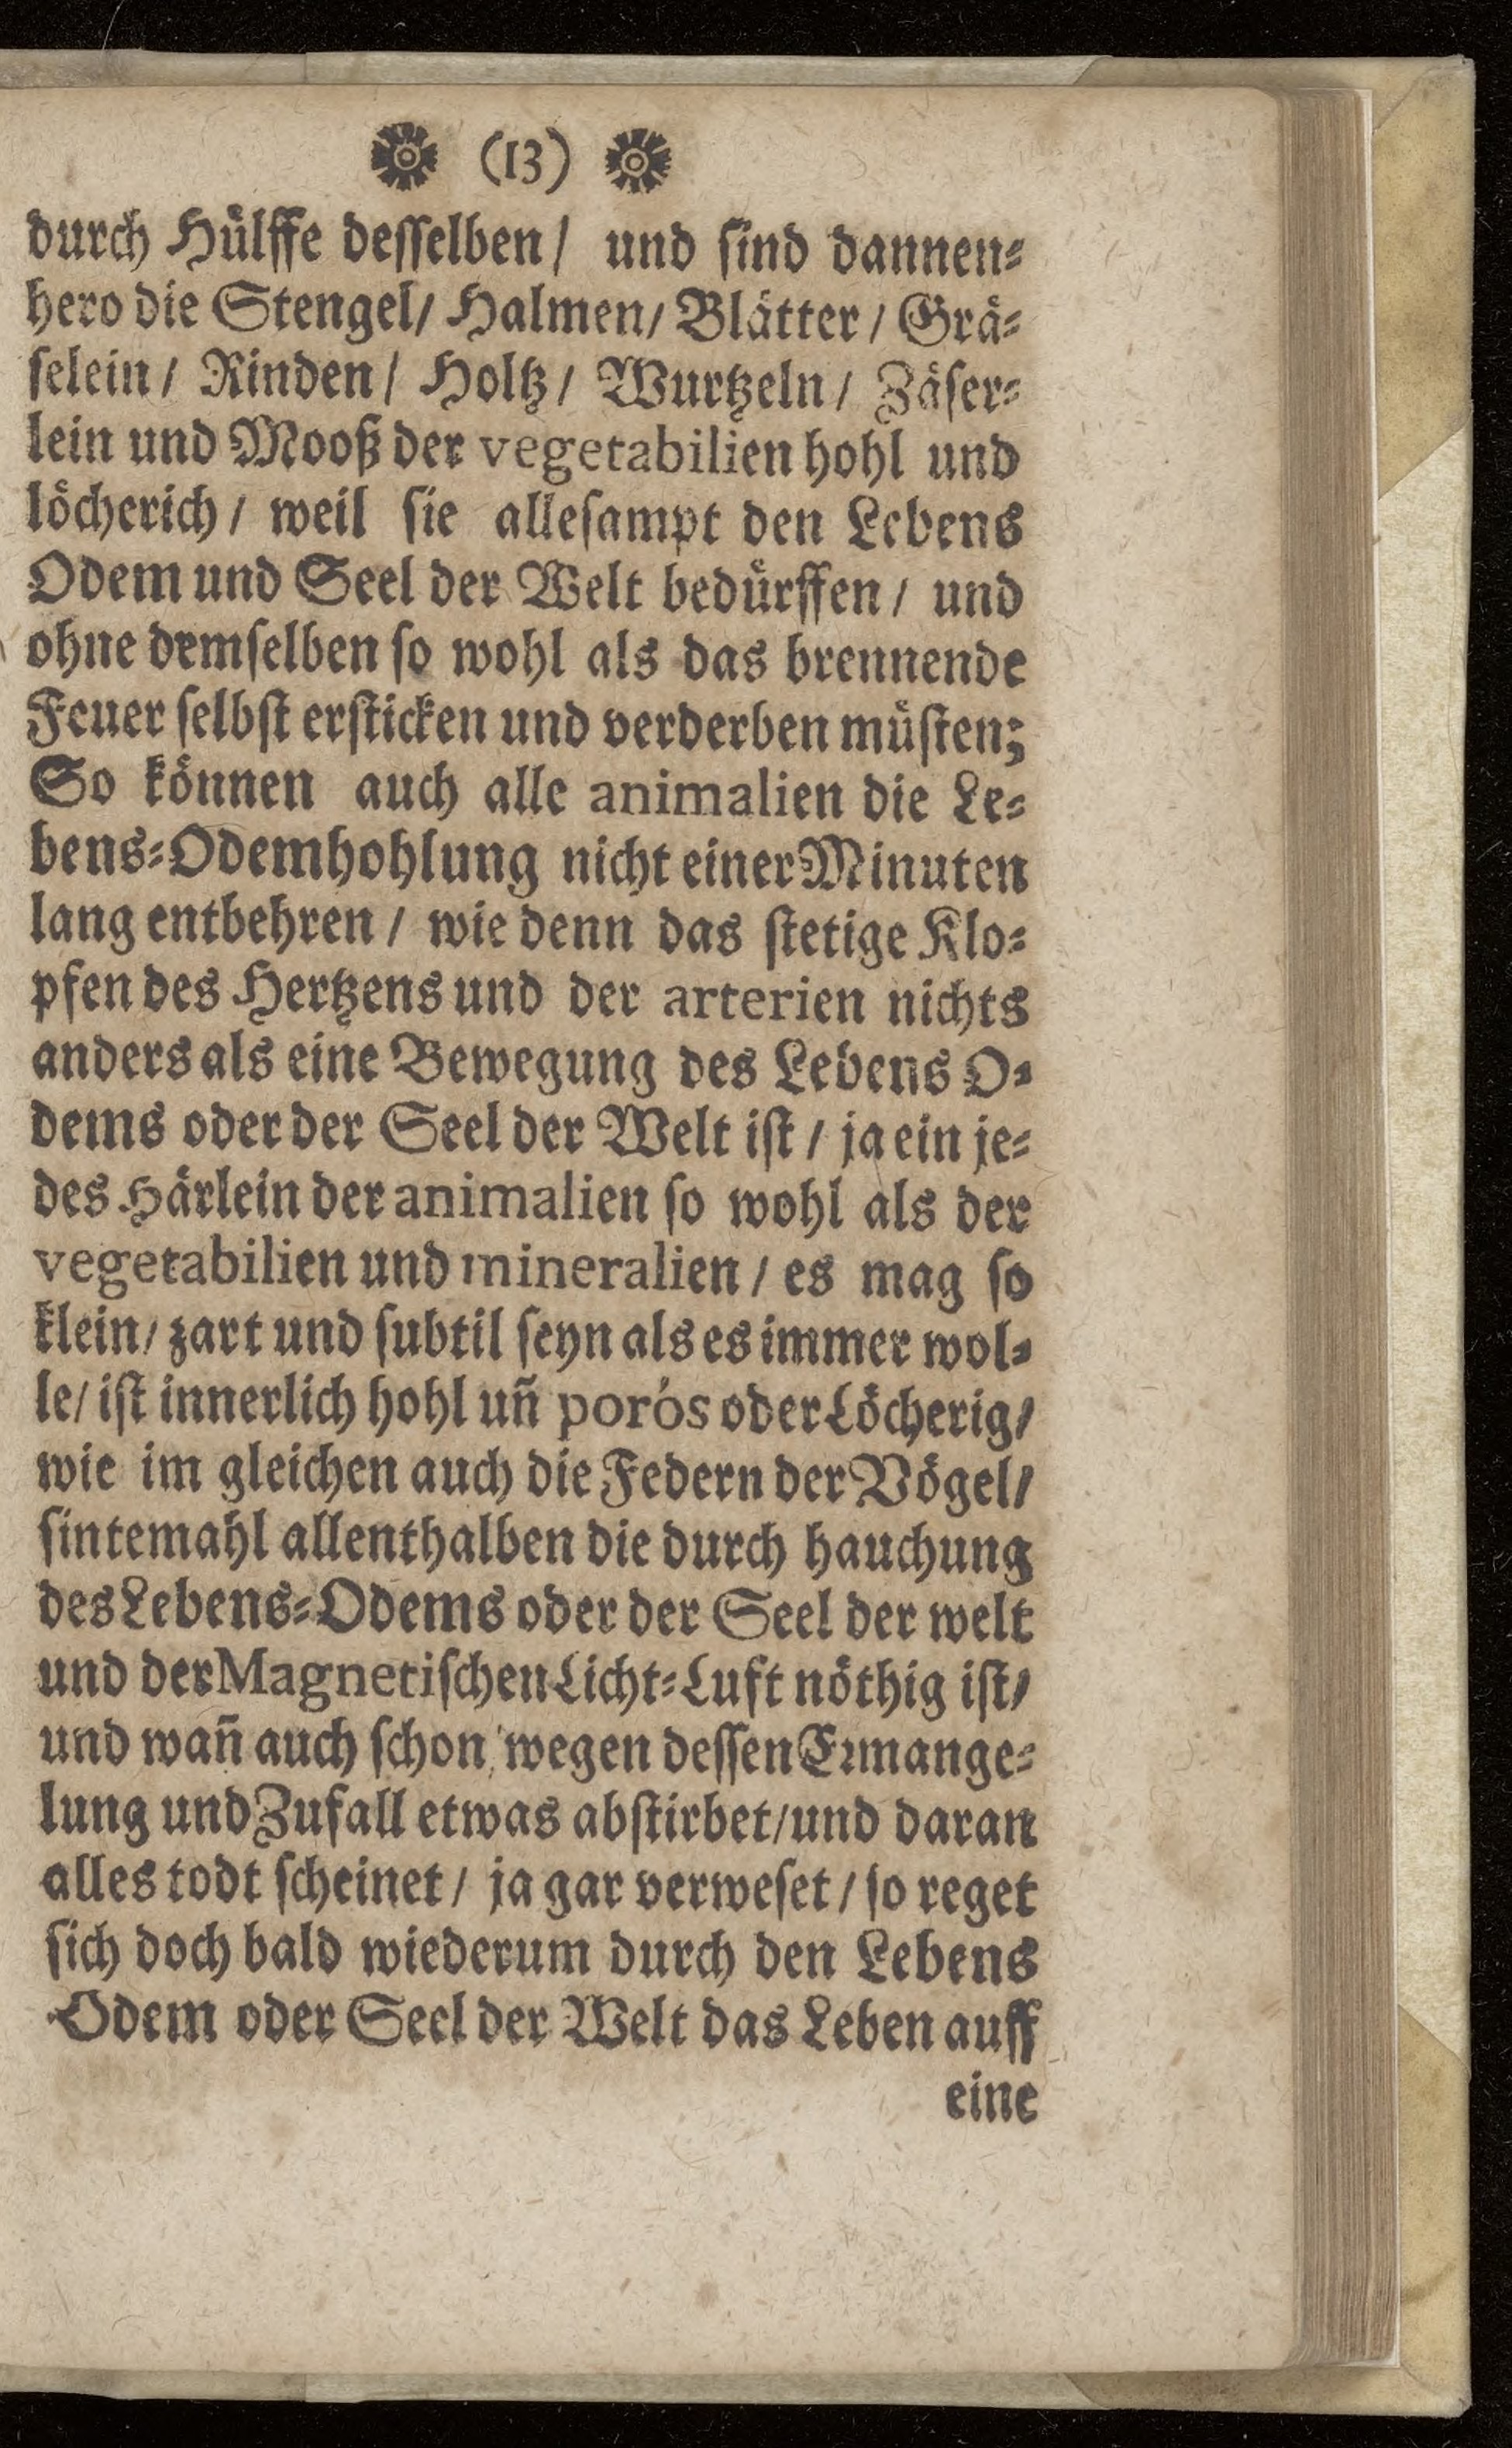 (13)
durch Hülffe desselben / und sind dannen-
hero die Stengel / Halmen / Blätter / Grä-
selein / Rinden / Holtz / Wurtzeln / Zäser-
lein und Mooß der vegetabilien hohl und
löcherich / weil sie allesampt den Lebens
Odem und Seel der Welt bedürffen / und
ohne demselben so wohl als das brennende
Feuer selbst ersticken und verderben müsten;
So können auch alle animalien die Le-
bens-Odemhohlung nicht einer Minuten
lang entbehren / wie denn das stetige Klo-
pfen des Hertzens und der arterien nichts
anders als eine Bewegung des Lebens O-
dems oder der Seel der Welt ist / ja ein je-
des Härlein der animalien so wohl als der
vegetabilien und mineralien / es mag so
klein / zart und subtil seyn als es immer wol-
le / ist innerlich hohl uñ porós oder Löcherig /
wie im gleichen auch die Federn der Vögel /
sintemahl allenthalben die durch hauchung
des Lebens-Odems oder der Seel der welt
und der Magnetischen Licht-Luft nöthig ist /
und wañ auch schon wegen dessen Ermange-
lung und Zufall etwas abstirbet / und daran
alles todt scheinet / ja gar verweset / so reget
sich doch bald wiederum durch den Lebens
Odem oder Seel der Welt das Leben auff
eine